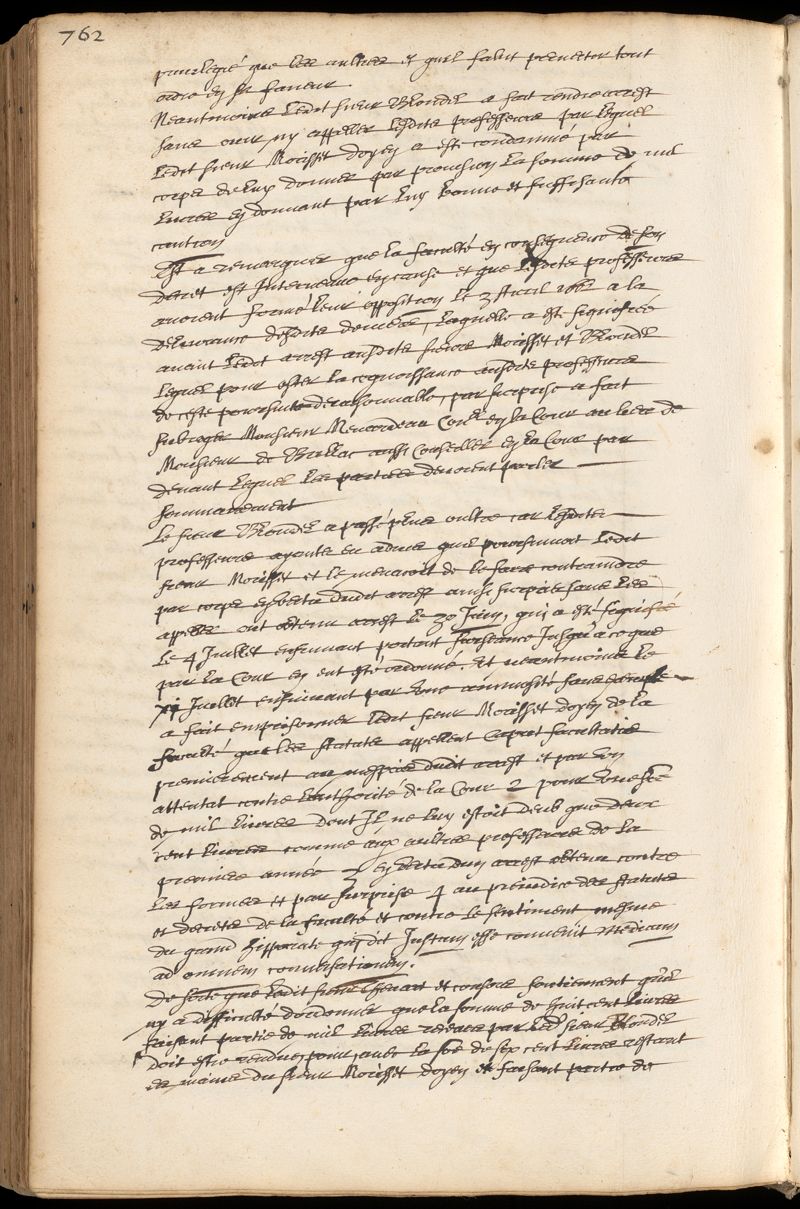 762
privilegié que les aultres et quil falut pervertir tout
ordre en sa faveur.
Neantmoins ledit sieur Blondel a fait rendre arrest
sans ouir ny appeller lesdits professeurs par lequel
ledit sieur Morisset doyen a esté condamné par
corps de luy donner par provision la somme de mil
livres en donnant par luy bonne et suffisante
caution
Est a remarquer que la faculté en consequence de son
decret est Intervenue en cause et que lesdits professeurs
avoient formé leur opposition le 3 Avril 1661 a la
delivrance desdits deniers, laquelle a esté signifiée
avant ledit arrest ausdits sieurs Morisset et Blondel
lequel pour oster la cognoissance ausdits professeurs
de ceste poursuite deraisonnable, par surprise a fait
subroger Monsieur Menardeau Conser en la Cour au lieu de
Monsieur de Brillac aussi Conseiller en la Cour par
devant lequel les parties devoient parler
sommairement
Le sieur Blondel a passé plus oultre car lesdits
professeurs ayants eu advis quil poursuivoit ledit
sieur Morisset et le menacoit de le faire contraindre
par corps en vertu dudit arrest ainsi surpris sans les
appeller ont obtenu arrest le 30 Juin, qui a esté signifié
le 4 Juillet ensuivant portant surseance Jusqu'a ce que
par la Cour en eut esté ordonné. Et neantmoins le
xj Juillet ensuivant par une animosité sans
a fait emprisonner ledit sieur Morisset doyen de la
faculté que les statuts appellent Caput facultatis
premierement au mespris dudit arrest et par un
attentat contre l'authorité de la Cour 2 pour une
de mil livres dont Il ne luy estoit deub que deux
cent livres comme aux aultres professeurs de la
premiere année 3 en vertu d'un arrest obtenu contre
les formes et par surprise 4 au preiudice des statuts
et decrets de la faculté et contre le sentiment mesme
du grand Hippocrate qui dit Justum esse convenit medicum
ad omnem conversationem.
De sorte que ledit sieur et consors soutiennent qu'il
ny a difficulté d'ordonner que la somme de huit cent livres
faisant partie de mil livres receues par led sieur Blondel
doit estre rendue, pour, avec la soe de six cent livres restant
es mains du sieur Morisset doyen et faisant partie de